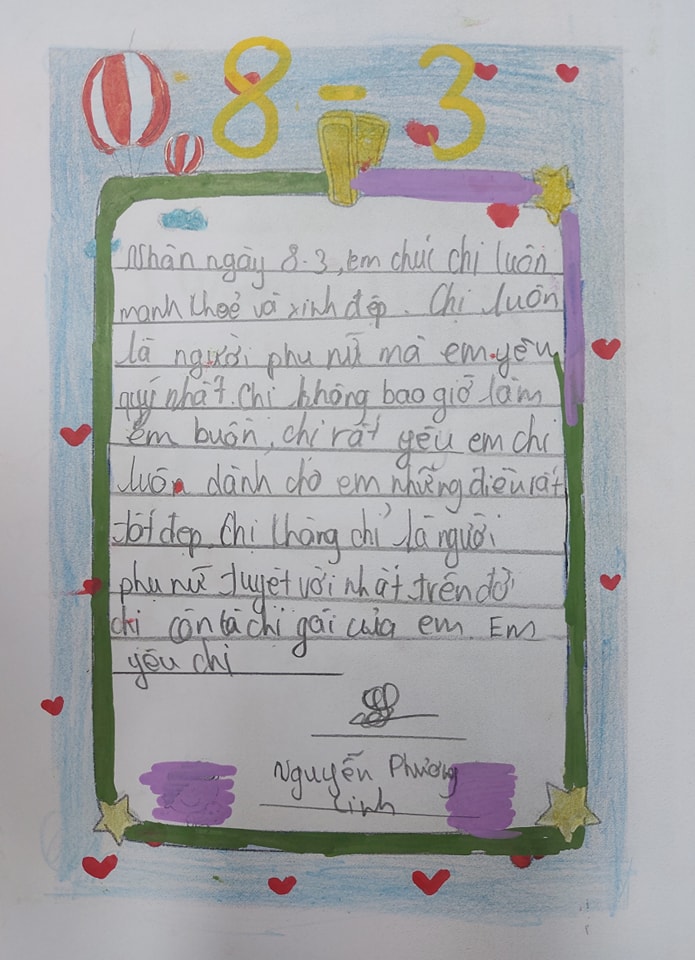 8 - 3
Nhân ngày 8-3, em chúc chị luôn
mạnh khoẻ và xinh đẹp. Chị luôn
là người phụ nữ mà em yêu
quý nhất. Chị không bao giờ làm
em buồn, chị rất yêu em chị
luôn dành cho em những điều rất
tốt đẹp. Chị không chỉ là người
phụ nữ tuyệt vời nhất trên đời
chị còn là chị gái của em. Em
yêu chị
Nguyễn Phương
Linh